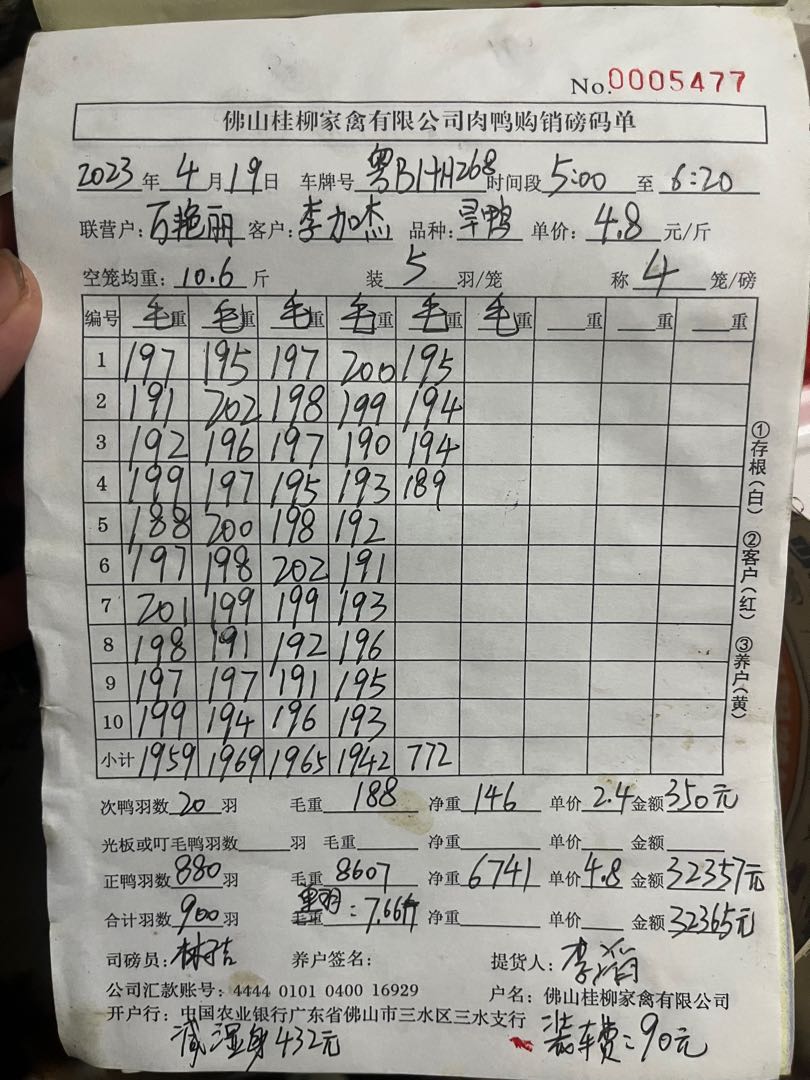 No.0005477
佛山桂柳家禽有限公司肉鸭购销磅码单
2023年4月19日 车牌号粤B1HH268时间段5:00至6:20
联营户:百艳丽 客户:李加杰 品种:旱鸭 单价:4.8元/斤
空笼均重:10.6斤 装5羽/笼 称4笼/磅
编号 毛重 毛重 毛重 毛重 毛重 毛重 重 重 重
1 197 195 197 200 195
2 191 202 198 199 194
3 192 196 197 190 194
4 199 197 195 193 189
5 188 200 198 192
6 197 198 202 191
7 201 199 199 193
8 198 191 192 196
9 197 197 191 195
10 199 194 196 193
小计 1959 1969 1965 1942 772
①存根(白) ②客户(红) ③养户(黄)
次鸭羽数20羽 毛重188 净重146 单价2.4金额350元
光板或叮毛鸭羽数羽 毛重 净重 单价 金额
正鸭羽数880羽 毛重8607 净重6741 单价4.8金额32357元
合计羽数900羽 毛重:7.66斤 净重 单价 金额32365元
司磅员: 养户签名: 提货人:李滔
公司汇款账号:4444 0101 0400 16929 户名:佛山桂柳家禽有限公司
开户行:中国农业银行广东省佛山市三水区三水支行
减湿身432元 装车费=90元